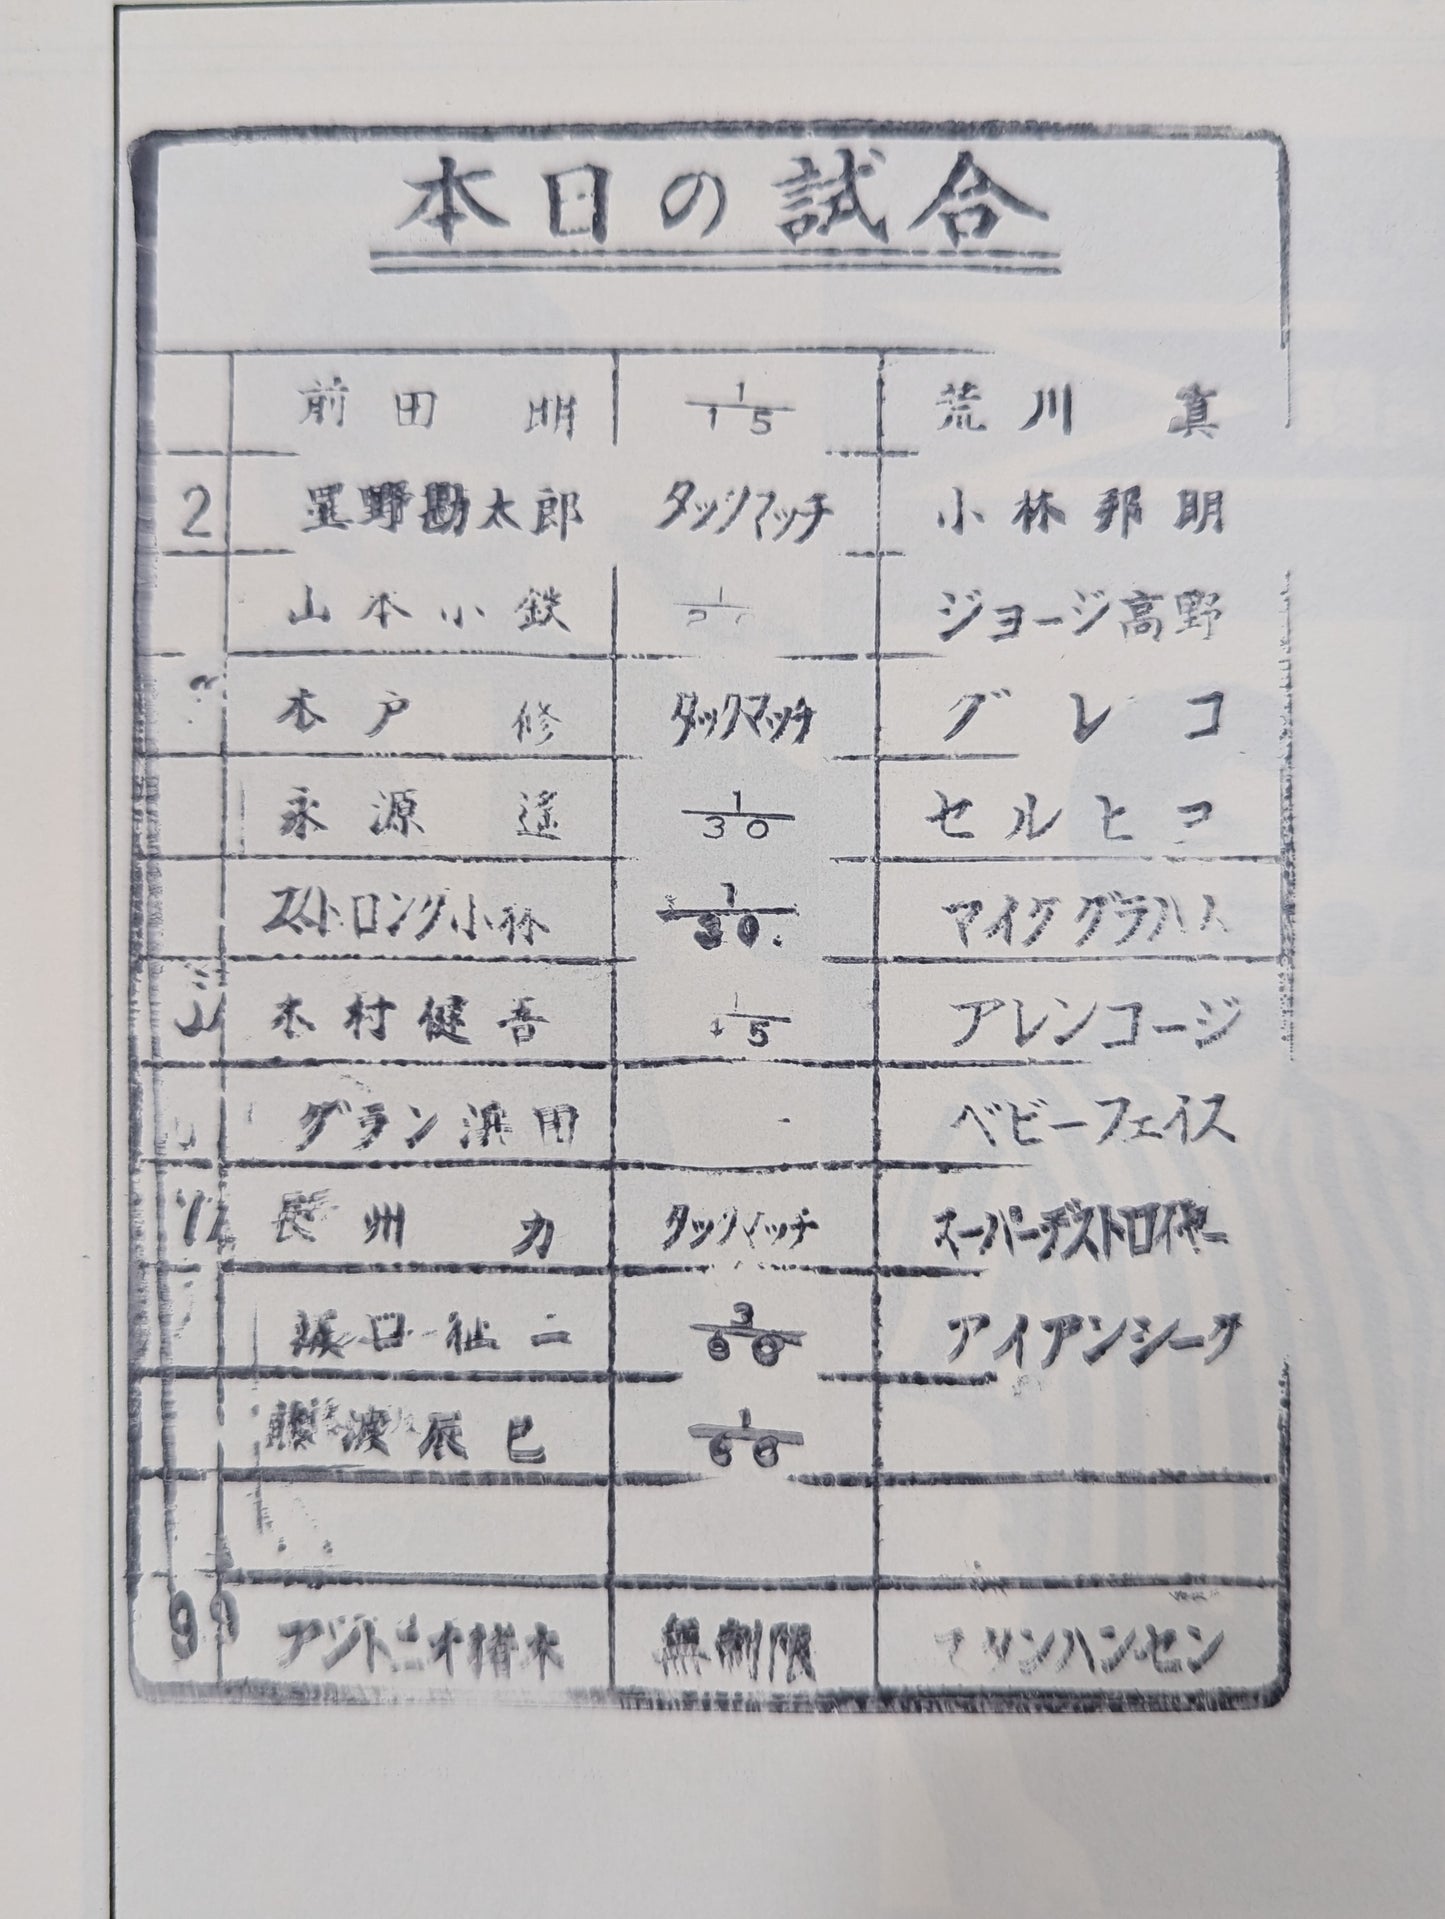 本日の試合
前田 明 1/15 荒川 真
2 星野勘太郎 タッグマッチ 小林邦明
山本小鉄 1 ジョージ高野
木戸 修 タックマッチ グレコ
永源 遥 1/30 セルヒオ
ストロング小林 1/30 マイクグラハム
木村健吾 1/15 アレンコージ
グラン浜田 ベビーフェイス
長州 力 タッグマッチ スーパーデストロイヤー
坂口征二 3/60 アイアンシーク
藤波辰巳 1/60
アントニオ猪木 無制限 スタンハンセン